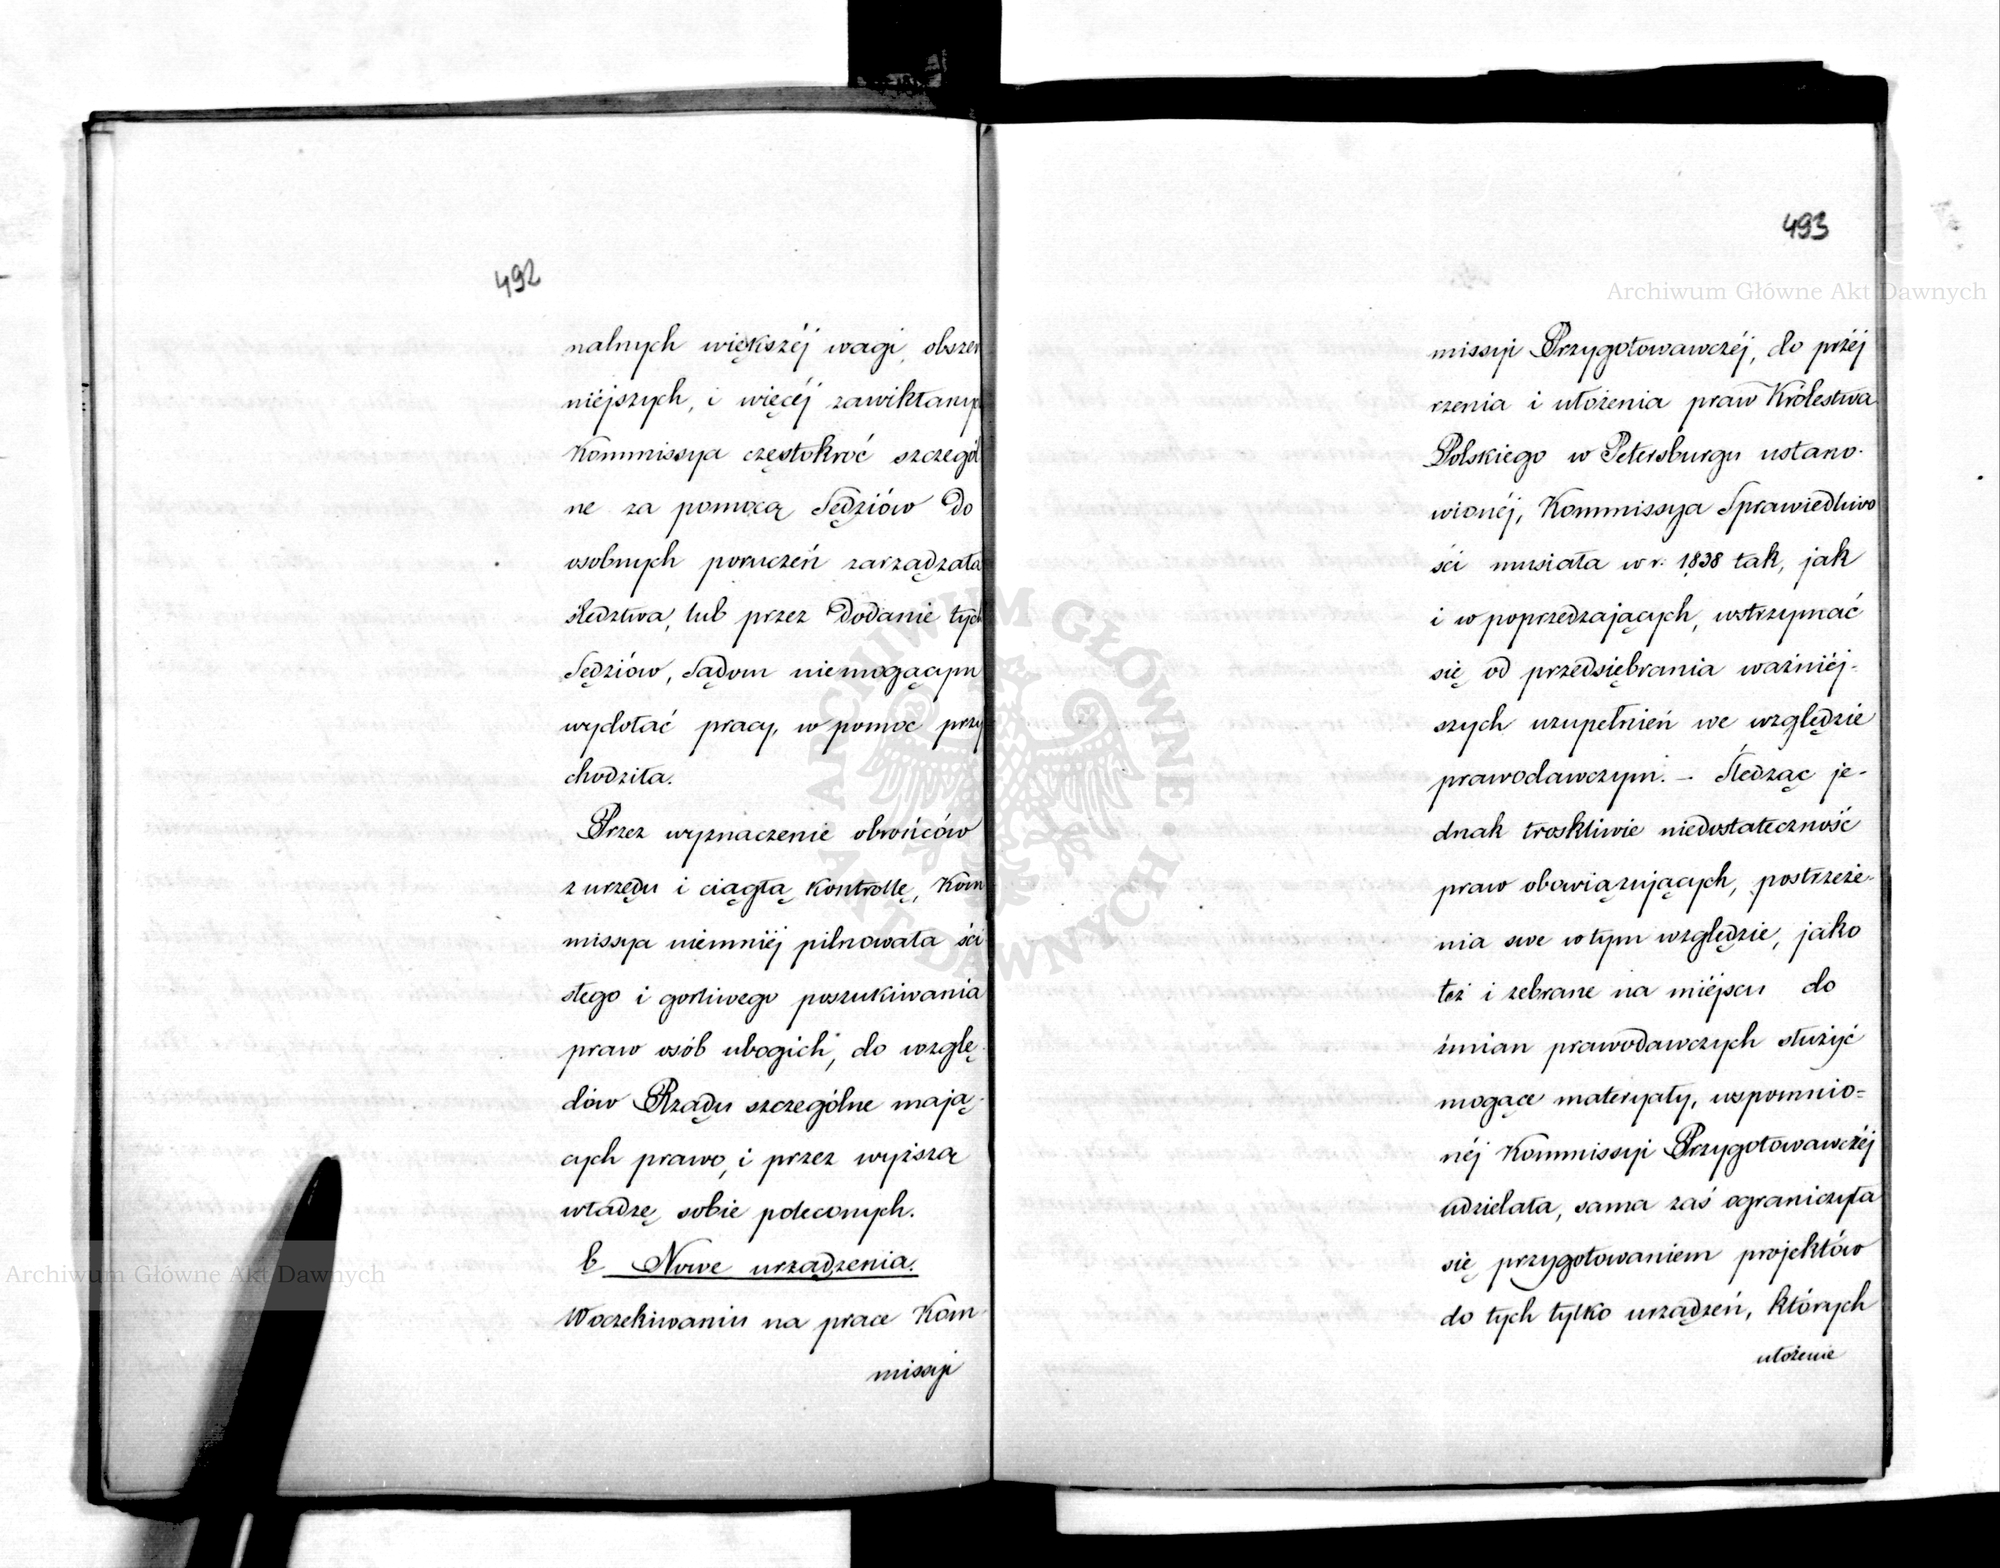 492
nalnych większéj wagi, obszer
niéjszych, i więcéj zawikłanych
Kommissya częstokroć szczegól
ne za pomocą Sędziów Do
osobnych poruczeń zarządzała
śledztwa, lub przez Dodanie tych
Sędziów, Sądom niemogącym
wydołać pracy, w pomoc przy
chodziła.
Przez wyznaczenie obrońców
z urzędu i ciągłą Kontrollę, Kom
missya niemniéj pilnowała ści
słego i gorliwego poszukiwania
praw osób ubogich, do wzglę-
dów Rządu szczególne mają-
cych prawo, i przez wyższą
władzę sobie poleconych.
b Nowe urządzenia.
W oczekiwaniu na prace Kom
missyi
493
missyi Przygotowawczéj, do przéj
rzenia i ułożenia praw Królestwa
Polskiego w Petersburgu ustano-
wionéj, Kommissya Sprawiedliwo
ści musiała w r. 1838 tak, jak
i w poprzedzających, wstrzymać
się od przedsiębrania ważniéj-
szych uzupełnień we względzie
prawodawczym. – Śledząc je-
dnak troskliwie niedostateczność
praw obowiązujących, postrzeże-
nia swe w tym względzie, jako
też i zebrane na miéjscu do
zmian prawodawczych służyć
mogące materyały, wspomnio=
néj Kommissyi Przygotowawczéj
udzielała, sama zaś ograniczyła
się przygotowaniem projektów
do tych tylko urządzeń, których
ułożenie
Archiwum Główne Akt Dawnych
Archiwum Główne Akt Dawnych
ARCHIWUM GŁÓWNE • AKT DAWNYCH •